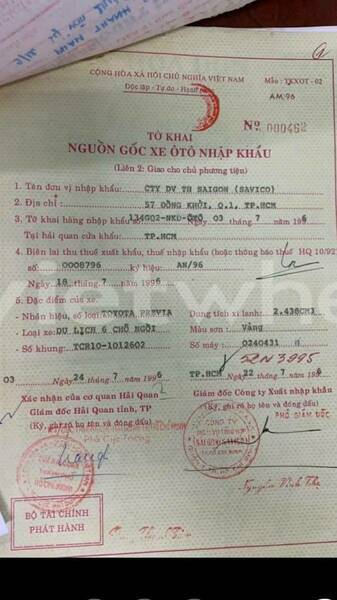 CỘNG HÒA XÃ HỘI CHỦ NGHĨA VIỆT NAM
Độc lập - Tự do - Hạnh
Mẫu: TKXOT - 02
AM/96
Nº 000462
TỜ KHAI
NGUỒN GỐC XE ÔTÔ NHẬP KHẨU
(Liên 2: Giao cho chủ phương tiện)
1. Tên đơn vị nhập khẩu: CTY DV TH SAIGON (SAVICO)
2. Địa chỉ: 57 ĐỒNG KHỞI, Q.1, TP.HCM
3. Tờ khai hàng nhập khẩu số: 134GQ2-NKD-ÔTÔ 03 7 1996
Tại hải quan cửa khẩu: TP.HCM
4. Biên lai thu thuế xuất khẩu, thuế nhập khẩu (hoặc thông báo thuế HQ 10/92)
số: 0008796 ký hiệu: AN/96
Ngày 18 tháng 7 năm 1996
5. Đặc điểm của xe:
- Nhãn hiệu, số loại: TOYOTA PREVIA Dung tích xi lanh: 2.438CM3
- Loại xe: DU LỊCH 6 CHỖ NGỒI Màu sơn: Vàng
- Số khung: TCR10-1012602 Số máy: 0240431
03 Ngày 24 tháng 7 năm 1996
TP.HCM Ngày 22 tháng 7 năm 1996
Xác nhận của cơ quan Hải Quan
Giám đốc Hải Quan tỉnh, TP
(Ký, ghi rõ họ tên và đóng dấu)
Giám đốc Công ty Xuất nhập khẩu
(Ký, ghi rõ họ tên và đóng dấu)
PHÓ GIÁM ĐỐC
CÔNG TY
BỘ TÀI CHÍNH
PHÁT HÀNH